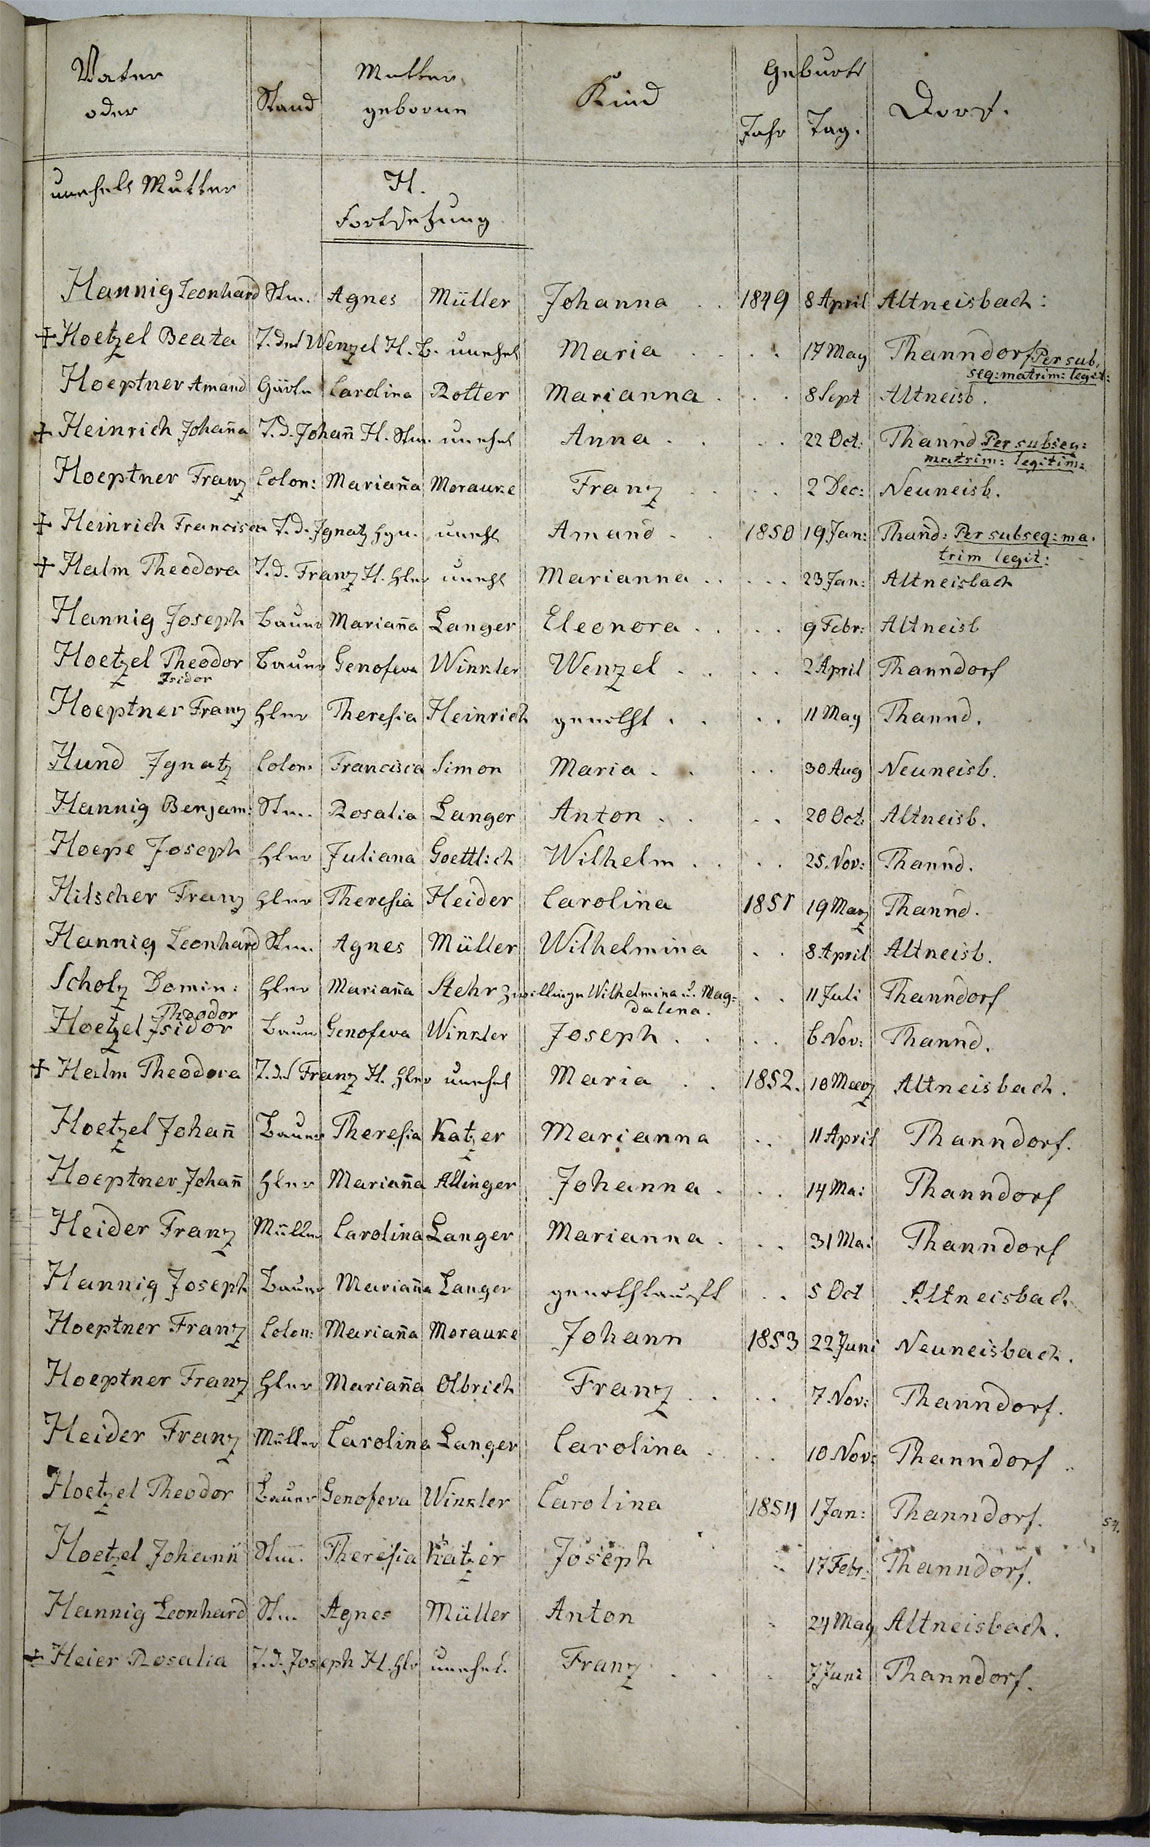 Vater Mutter Geburts
oder Stand geborne Kind Jahr Tag. Dorf.
unehel. Mutter H.
Fortsetzung
Hannig Leonhard Stm. Agnes Müller Johanna . . 1849 8 April Altneisbach:
+ Hoetzel Beata T. des Wenzel H. B. unehel Maria . . . . 17 May Thanndorf Per sub,
seq: matrim: legit:
Hoeptner Amand Gärtn Carolina Rotter Marianna . . . 8 Sept Altneisb.
+ Heinrich Johan̄a T. d. Johan̄ H. Stm. unehel Anna . . . . 22 Oct: Thannd Per subseq:
matrim: legitim:
Hoeptner Franz Colon: Marian̄a Morauke Franz . . . . 2 Dec: Neuneisb.
+ Heinrich Francisca T. d. Ignatz unehl Amand . . 1850 19 Jan: Than̄d: Per subseq: ma.
trim legit:
+ Halm Theodora T. d. Franz H. Hler unehl Marianna . . . . . 23 Jan: Altneisbach
Hannig Joseph Bauer Marian̄a Langer Eleonora . . . . 9 Febr: Altneisb
Hoetzel Theodor Bauer Genofeva Winkler Wenzel . . . . 2 April Thanndorf
Isidor
Hoeptner Franz Hler Theresia Heinrich genotht . . . . 11 May Thannd.
Hund Ignatz Colon: Francisca Simon Maria . . . . 30 Aug Neuneisb.
Hannig Benjam: Stm. Rosalia Langer Anton . . . . 20 Oct: Altneisb.
Hoepe Joseph Hler Juliana Goettlich Wilhelm . . . . 25. Nov: Thannd.
Hilscher Franz Hler Theresia Heider Carolina 1851 19 Marz Thannd.
Hannig Leonhard Stm. Agnes Müller Wilhelmina . . 8 April Altneisb.
Scholz Domin: Hler Marian̄a Stehr Zwillinge Wilhelmina u. Mag= . . 11 Juli Thanndorf
dalena.
Theodor
Hoetzel Isidor Bauer Genofeva Winkler Joseph . . . . 6 Nov: Thannd.
+ Halm Theodora T. des Franz H. Hler unehel Maria . . 1852. 10 Maerz Altneisbach.
Hoetzel Johan̄ Bauer Theresia Katzer Marianna . . 11 April Thanndorf.
Hoeptner Johan̄ Hler Marian̄a Allinger Johanna . . . 14 Mai Thanndorf
Heider Franz Müller Carolina Langer Marianna . . . 31 Mai Thanndorf
Hannig Joseph Bauer Marian̄a Langer genothtauft . . 5 Oct Altneisbach
Hoeptner Franz Colon: Marian̄a Morauke Johann 1853 22 Juni Neuneisbach.
Hoeptner Franz Hler Marian̄a Olbrich Franz . . . . 7. Nov: Thanndorf.
Heider Franz Müller Carolina Langer Carolina . . . 10 Nov: Thanndorf
Hoetzel Theodor Bauer Genofeva Winkler Carolina 1854 1 Jan: Thanndorf. 54.
Hoetzel Johann Stm. Theresia Katzer Joseph . . 17 Febr. Thanndorf.
Hannig Leonhard Stm Agnes Müller Anton . 24 May Altneisbach.
+ Heier Rosalia T. d. Joseph H. Hlr unehel. Franz . . . 7 Juni Thanndorf.